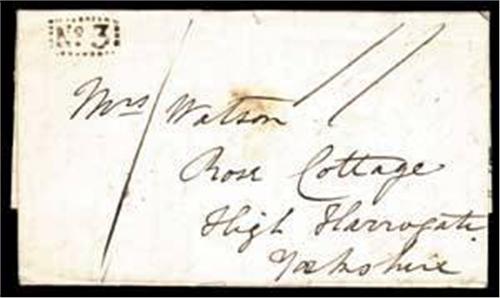 No. 3
Mrs Watson
Rose Cottage
High Harrogate
Yorkshire